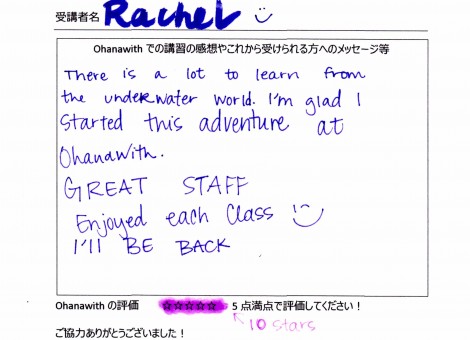 受講者名 Rachel
Ohanawith での講習の感想やこれから受けられる方へのメッセージ等
There is a lot to learn from
the underwater world. I'm glad I
started this adventure at
Ohanawith.
GREAT STAFF
Enjoyed each class
I'll BE BACK
Ohanawith の評価 ☆☆☆☆☆ 5 点満点で評価してください!
10 stars
ご協力ありがとうございました!